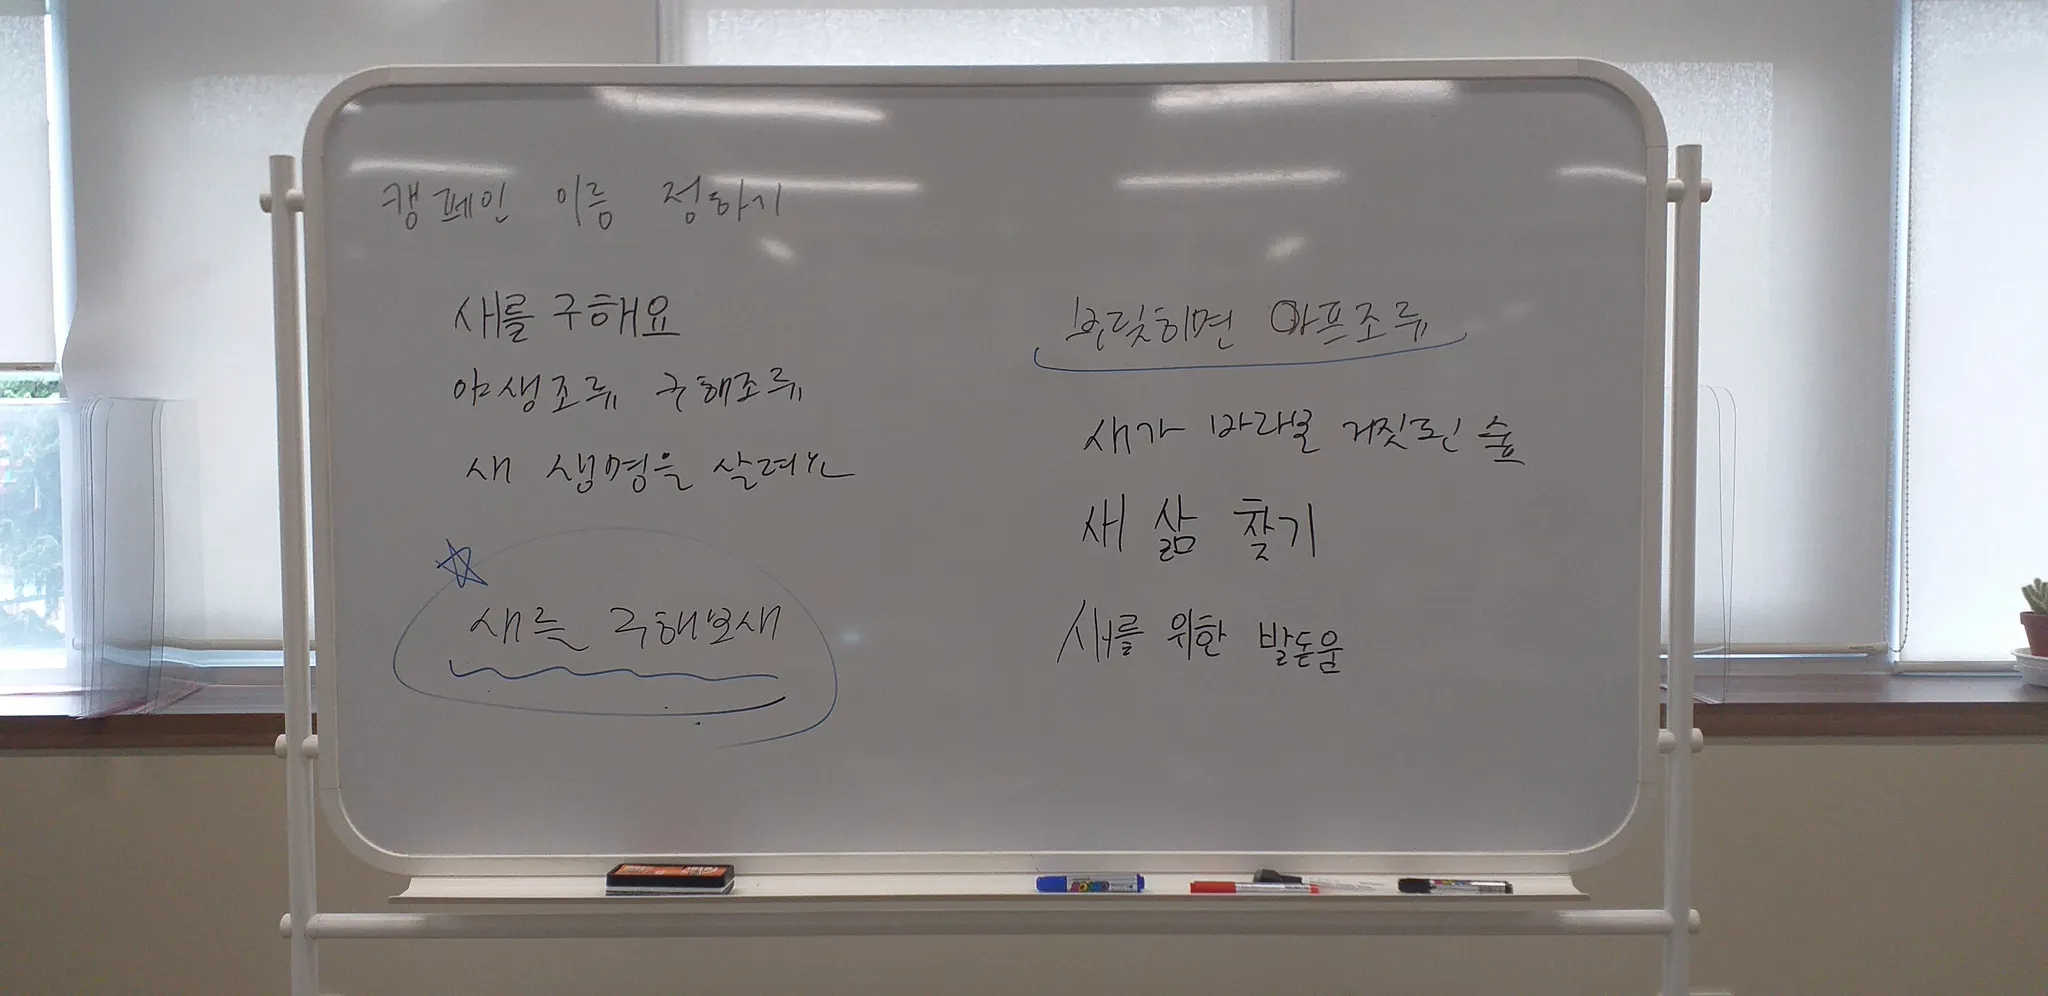 캠페인 이름 정하기
새를 구해요
야생조류 구해조류
새 생명을 살려요
새를 구해보새
부딪히면 아프조류
새가 바라본 거짓된 숲
새 삶 찾기
새를 위한 발돋움